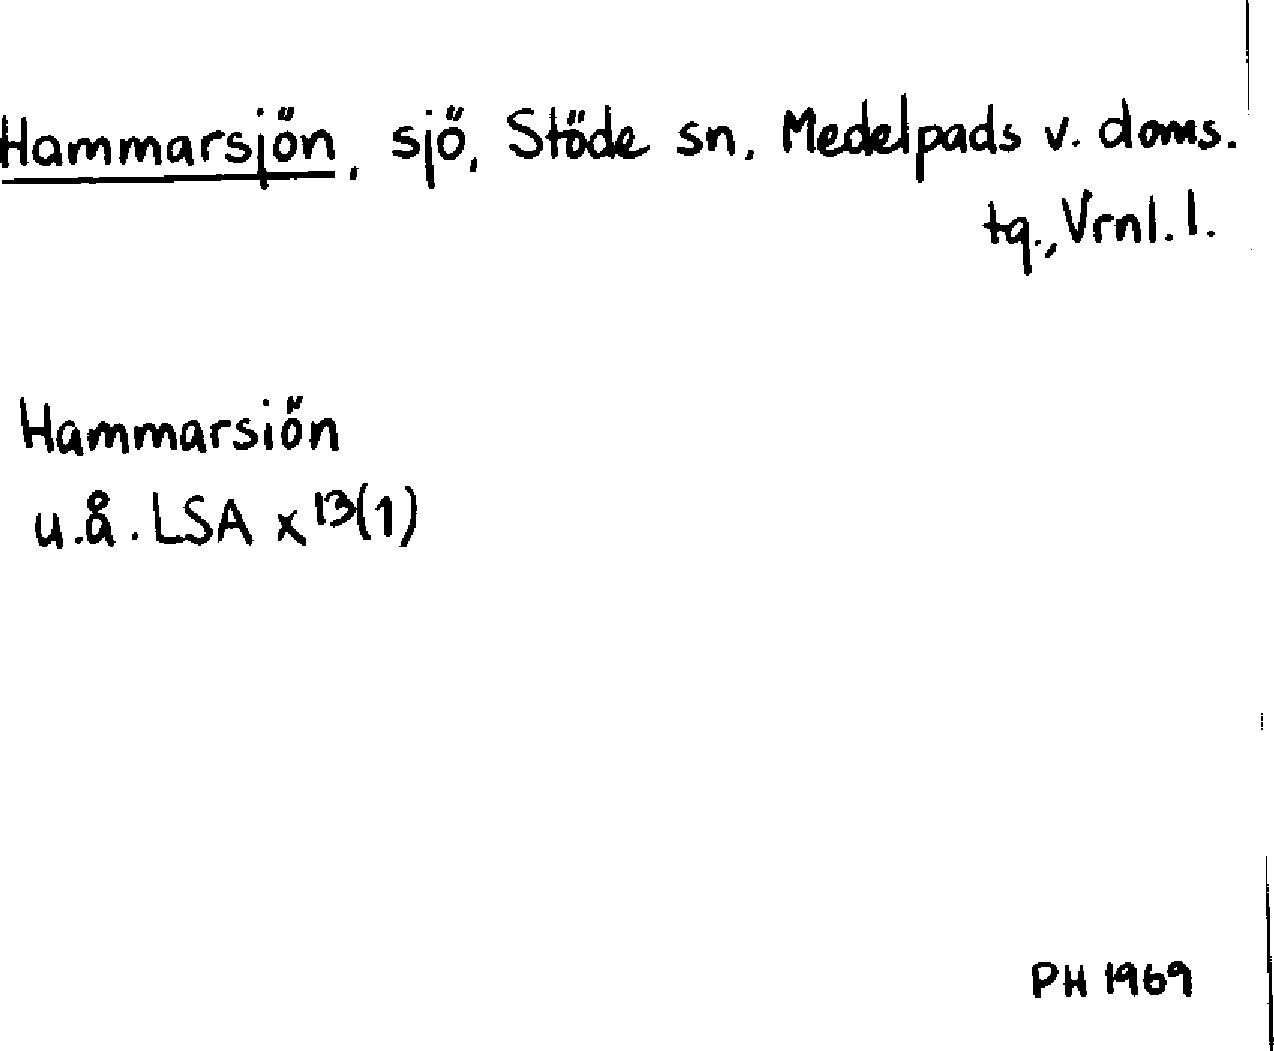 Hammarsjön, sjö, Stöde sn, Medelpads v. doms.
tg., Vrnl. l.
Hammarsiön
u.å. LSA x 13(1)
PH 1969